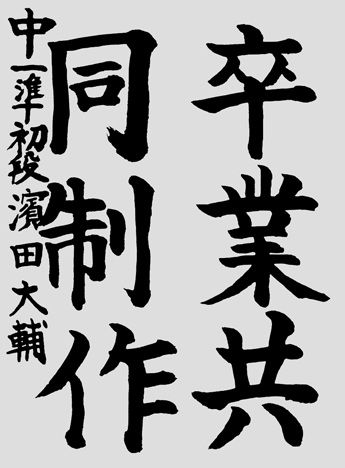 卒業共
同制作
中一準初段濱田大輔